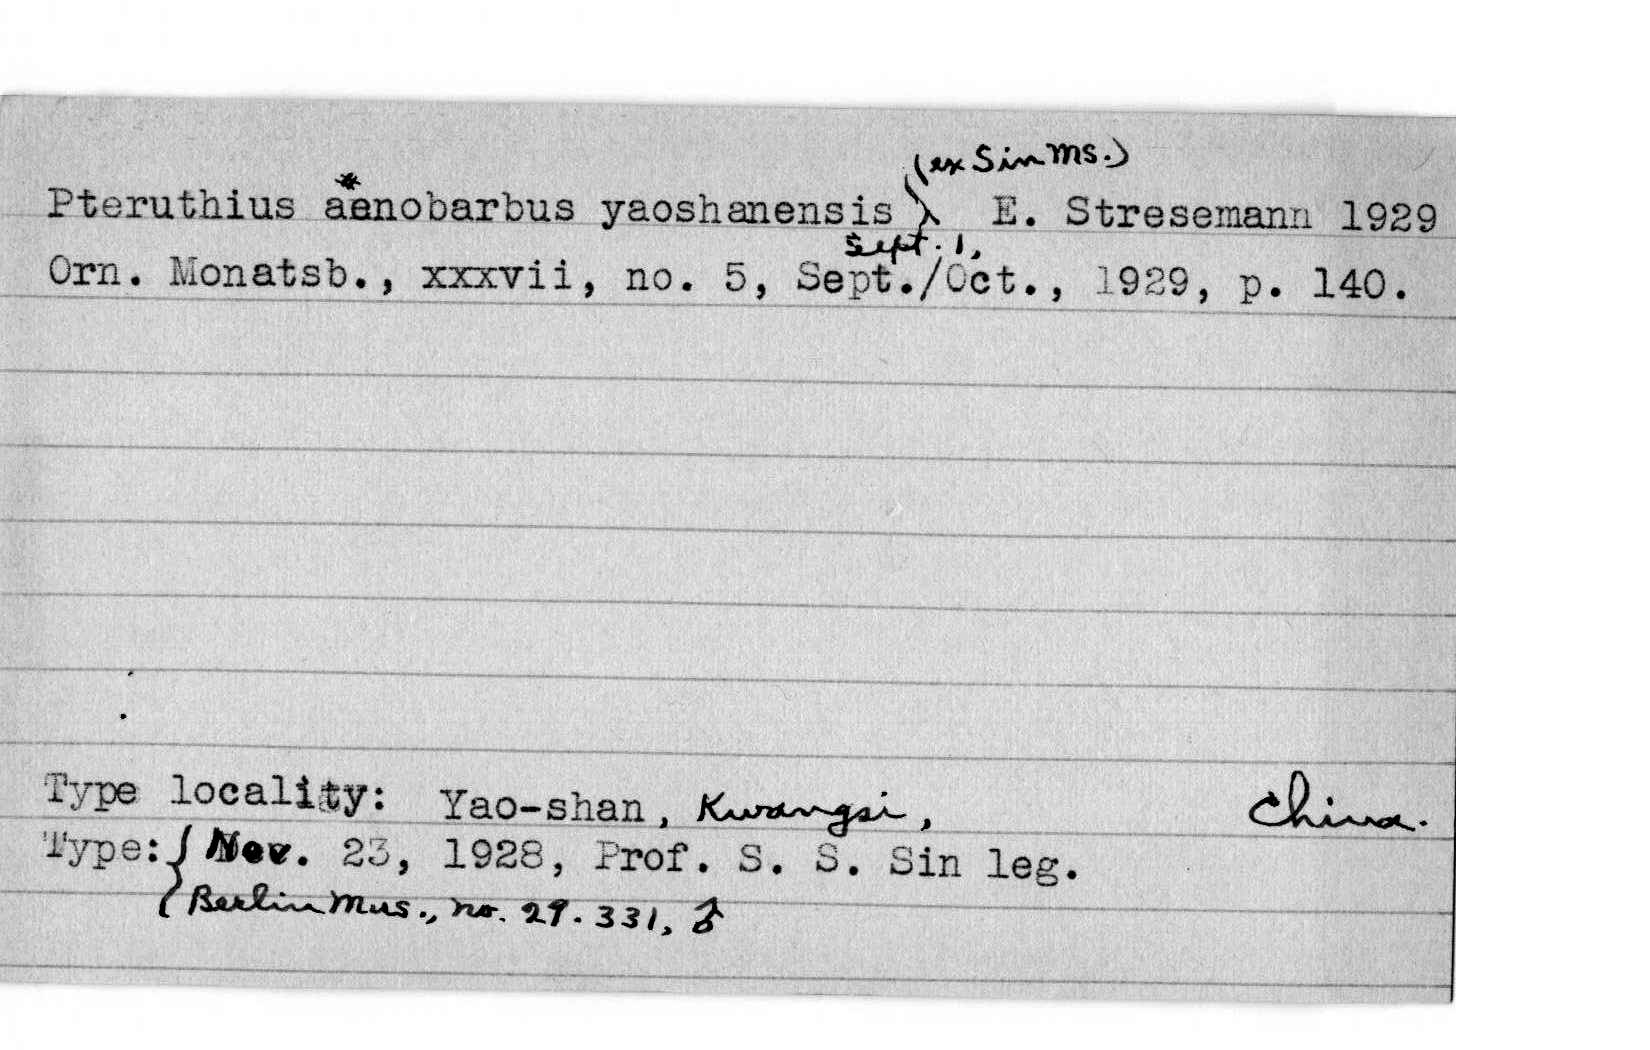 (ex Sin MS.)
Pteruthius aenobarbus yaoshanensis E. Stresemann 1929
Sept. 1,
Orn. Monatsb., xxxvii, no. 5, Sept./Oct., 1929, p. 140.
Type locality: Yao-shan, Kwangsi, China.
Type: { Nov. 23, 1928, Prof. S. S. Sin leg.
Berlin Mus., no. 29.331, ♂